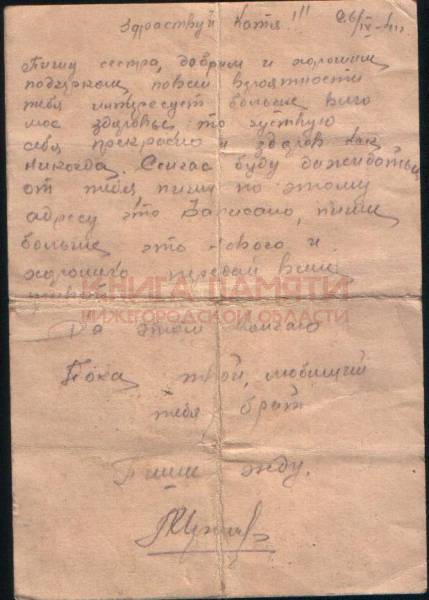 Здраствуй Катя!!! 26/IV-
Пишу сестра, добрым и хорошим
подчерком, по всей вероятности
тебя интересует больше всего
мое здоровье, то чуствую
себя прекрасно и здоров как
никогда. Сейчас буду дожидаться
от тебя писем по этому
адресу что записано, пиши
больше что нового и
хорошего передай всем
привет
КНИГА ПАМЯТИ
НИЖЕГОРОДСКОЙ ОБЛАСТИ
На этом кончаю
Пока твой, любящий
тебя брат
Пиши жду.